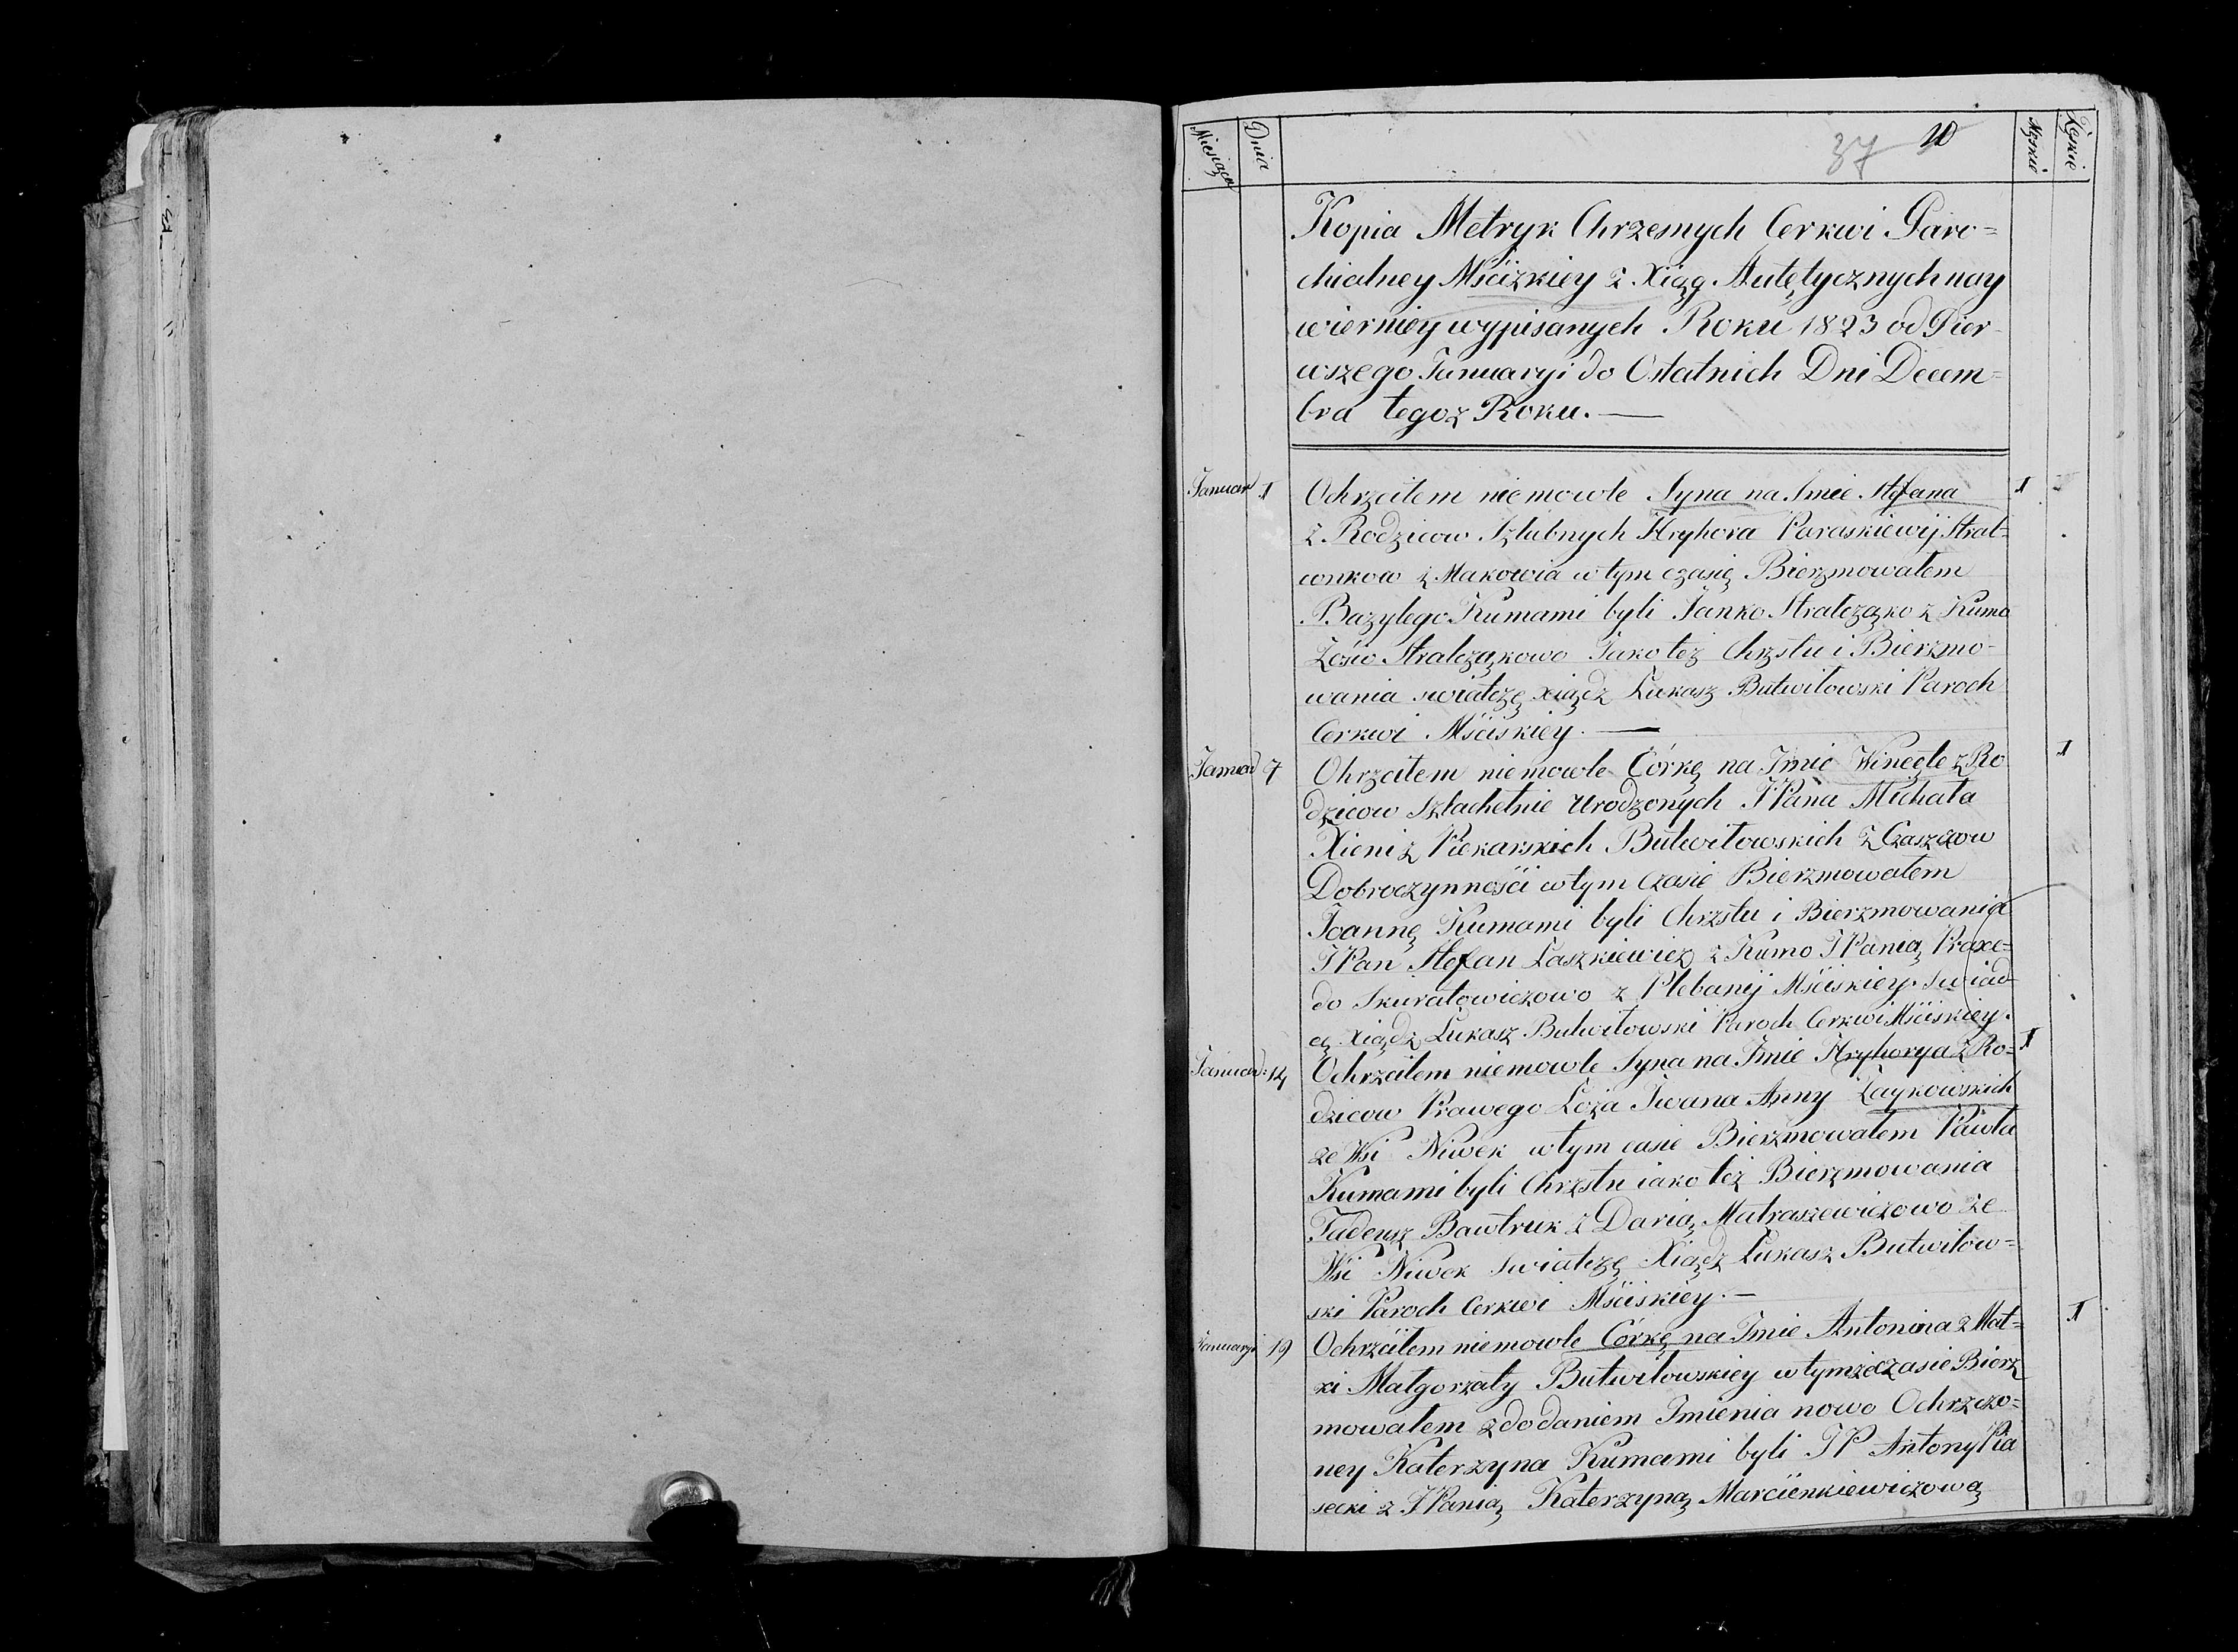 Miesiąca Dnia 37 10 Męskie Żeńskie
Kopia Metryk Chrzesnych Cerkwi Paro=
chialney Mścizkiey z Xiąg Autętycznych nay
wierniey wypisanych Roku 1823 od Pier
wszego Januaryi do Ostatnich Dni Decem=
bra tegoz Roku. —
Januar 1 Ochrzciłem niemowle Syna na Imie Stefana 1
z Rodzicow Szlubnych Hryhora Paraskiewij Strał=
conkow z Makowia w tym czasię Bierzmowałem
Bazylego Kumami byli Janko Strałcząko z Kumo
Zośio Strałcząkowo Jako też Chrzstu i Bierzmo-
wania swiatczę xiądz Łukasz Butwiłowski Paroch
Cerkwi Mściskiey. —
Januar 7 Ohrzciłem niemowle Córkę na Imie Wincęte z Ro 1
dzicow Szlachetnie Urodzonych JPana Michała
Xieni z Piekarskich Butwiłowskich z Czaszcow
Dobroczynności w tym Czasie Bierzmowałem
Joannę Kumami byli Chrzstu i Bierzmowania
JPan Stefan Łaszkiewicz z Kumo JPanią Praxe=
do Skuratowiczowo z Plebanij Mściskiey. Swiad
cę Xiądz Łukasz Butwiłowski Paroch Cerkwi Mściskiey.
Januar: 14 Ochrzciłem niemowle Syna na Imie Hryhorya z Ro= 1
dzicow Prawego Łoża Iwana Anny Łaykowskich
ze Wsi Niwek w tym casie Bierzmowałem Pawła
Kumami byli Chrzstu iako też Bierzmowania
Tadeusz Bawtruk z Darią Matraszewiczowo ze
Wśi Niwek Swiatczę Xiądz Łukasz Butwiłow=
ski Paroch Cerkwi Mściskiey. —
Januaryi 19 Ochrzciłem niemowle Córkę na Imie Antonina z Mat= 1
ki Małgorzaty Butwiłowskiey w tymże czasie Bierz
mowałem z dodaniem Imienia nowo Ochrzczo=
ney Katerzyna Kumami byli JP Antony Pia
secki z JPanią Katerzyną Marcienkiewiczową